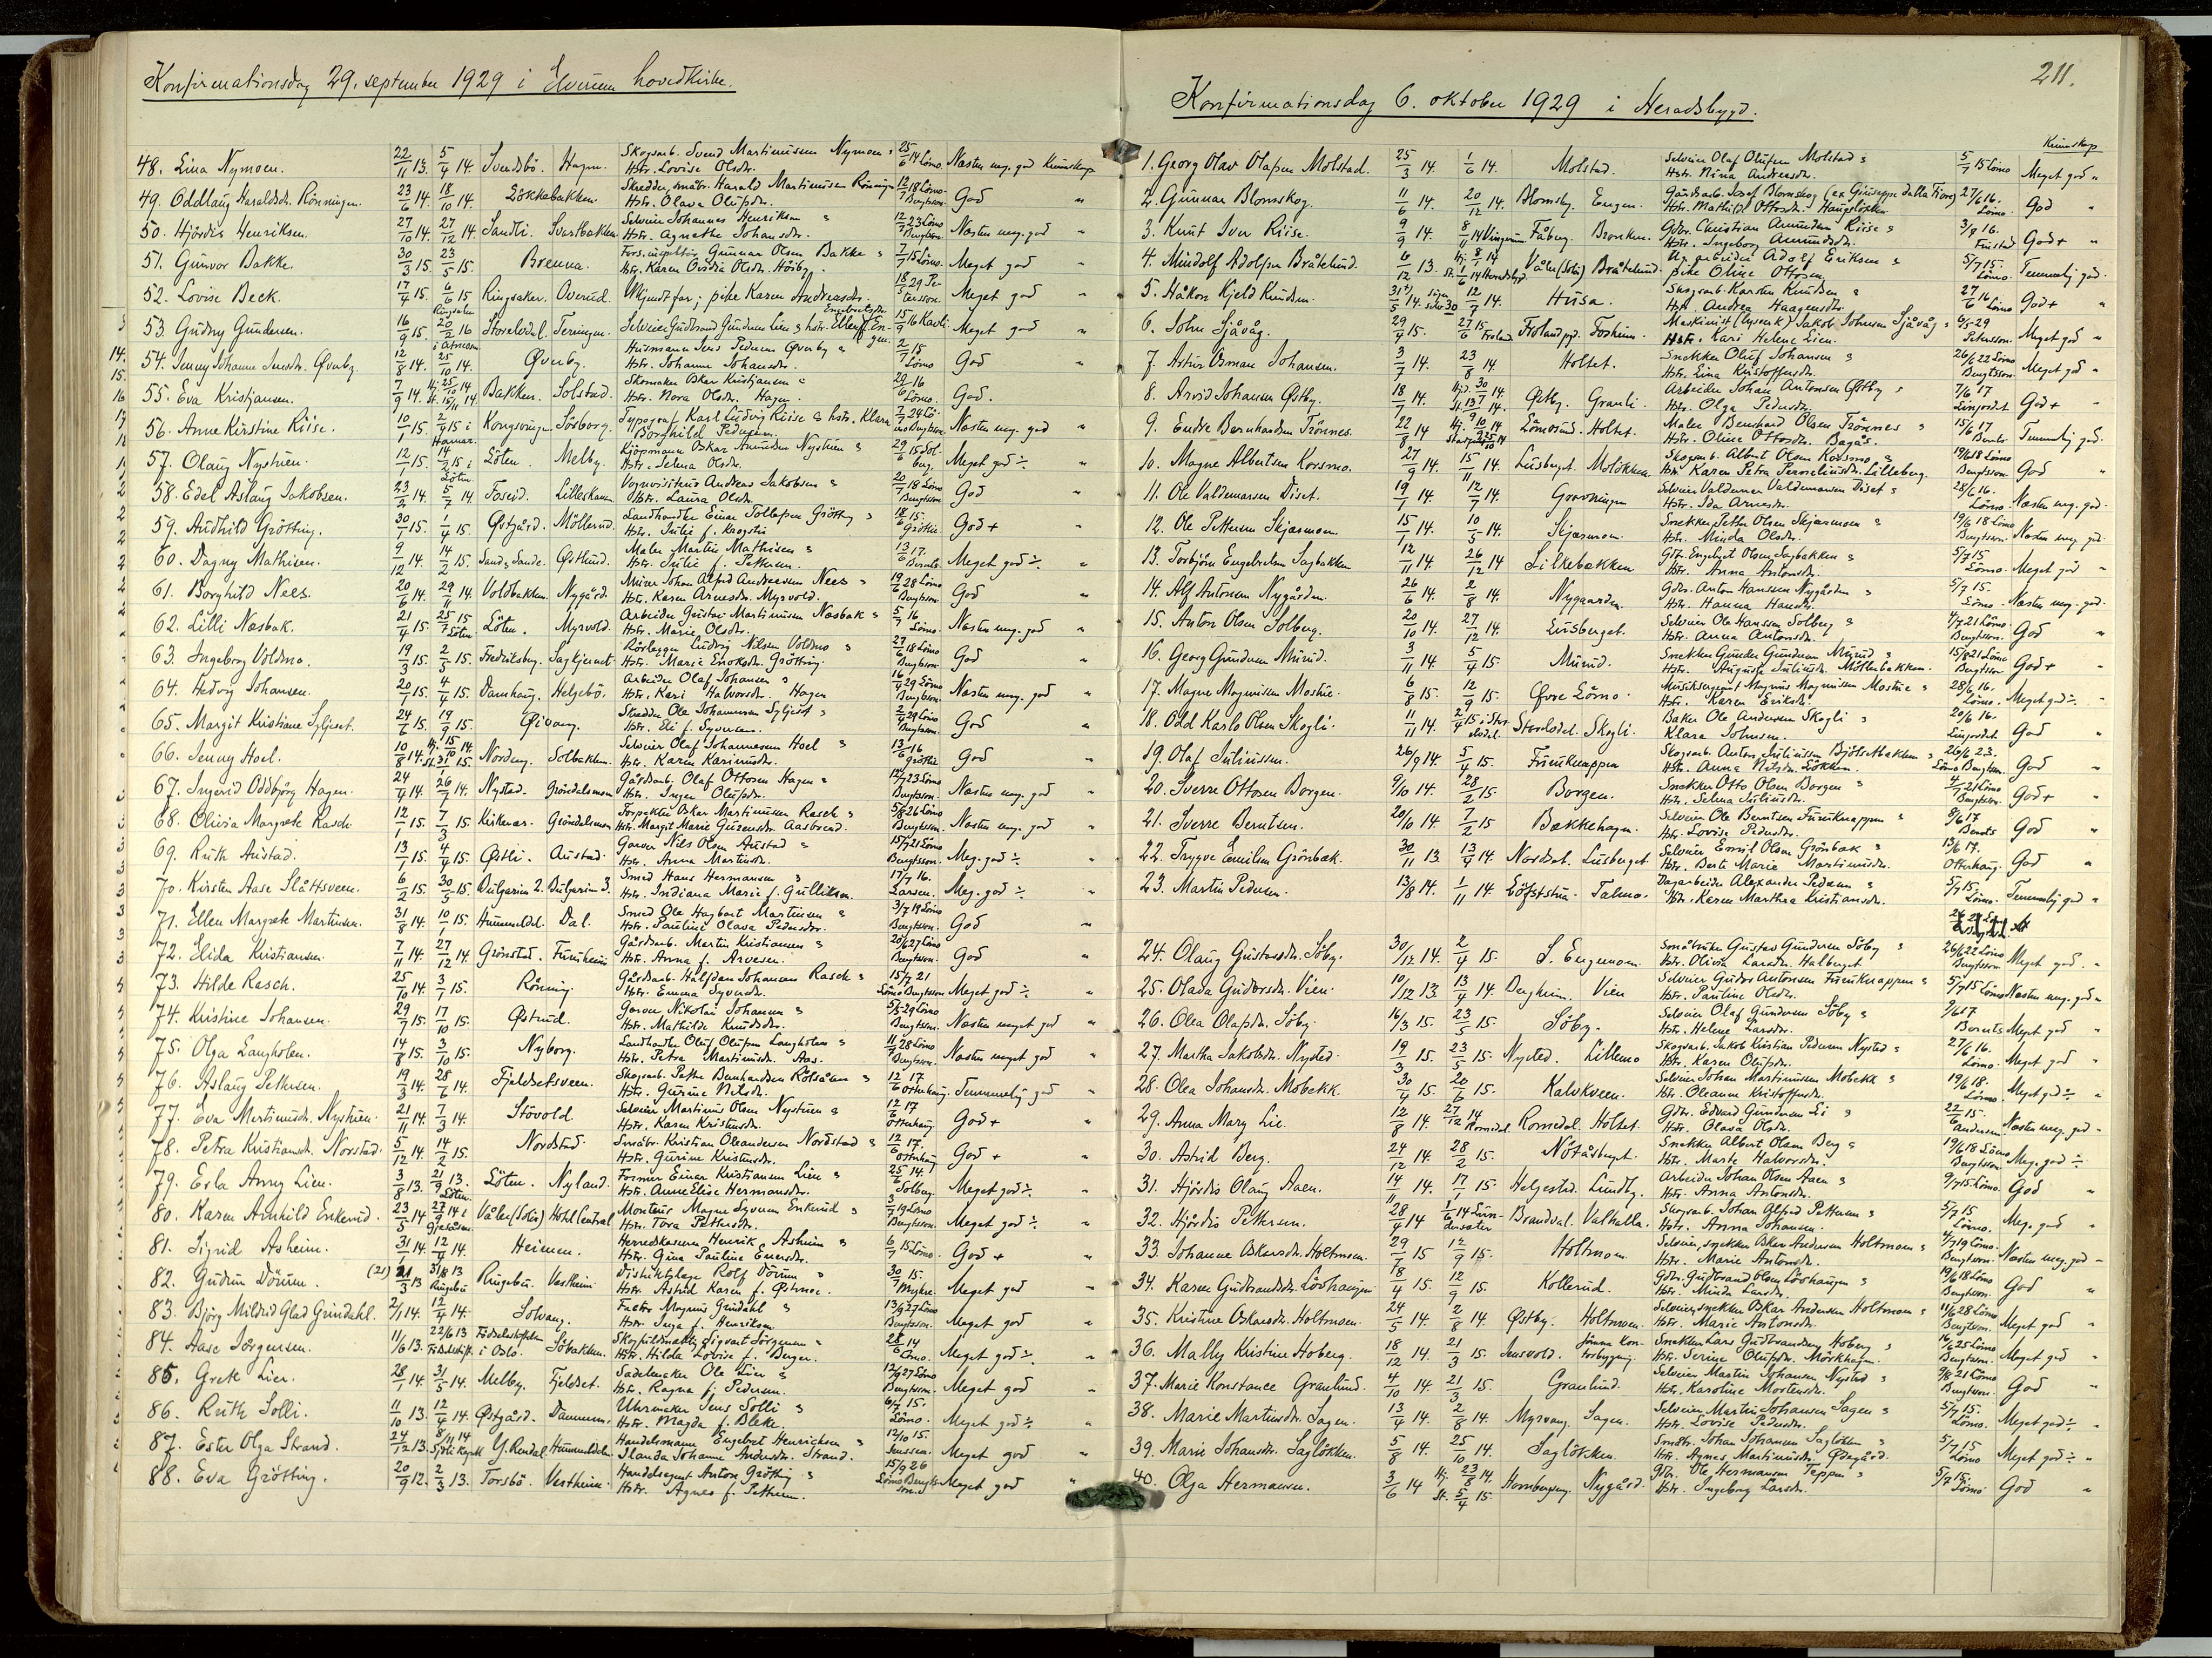 Konfirmationsdag 29. september 1929 i Elverum hovedkirke.
48. Lina Nymoen. 22/11 13. 5/4 14. Svendsbö. Hagen. Skogsarb. Svend Martinusen Nymoen & Hstr. Lovise Olsdtr. 25/6 14 Lömo. Næsten meg. god Kunnskap
49. Oddlaug Haraldsdr. Rönningen. 23/6 14. 18/10 14. Lökkebakken. Skredder, småbr. Harald Martinusen Rönningen Hstr. Olava Olufsdr. 12/7 18 Lömo-Bengtsson. God "
50. Hjördis Henriksen. 27/10 14. 27/12 14. Sandli. Svartbakken. Selveier Johannes Henriksen " Hstr. Agnethe Johansdtr. 12/7 23 Lömo Bengtsson. Næsten meg. god "
51. Gunvor Bakke. 30/3 15. 23/5 15. Brenna. Fors.inspektör Gunnar Olsen Bakke " Hstr. Karen Ovidia Olsdr. Høiby. 7/7 15 Lömo. Meget god "
52. Lovise Beck. 17/4 15. 6/6 15 Ringsaker Ringsaker. Overud. Ukjendt far; pike Karen Andreasdtr. 18/5 29 Petersson. Meget god "
53. Gudny Gundersen. 16/9 15. 20/2 16 i Åmot Storelvdal. Terningen. Selveier Gudbrand Gundersen Lien & hstr. Ellen f. Engen. 15/9 16 Meget god "
54. Jenny Johanne Jensdtr. Øverby. 12/8 14. 25/10 14. Øverby. Husmann Jens Pedersen Øverby " Hstr. Johanne Johansdtr. 2/7 15 Lömo God "
55. Eva Kristiansen. 7/9 14. Hj. 25/10 14. St. 15/11 14. Bakken. Solstad. Skomaker Oskar Kristjansen " Hstr. Nora Olsdtr. Hagen. 29/6 16 Lömo. God.
56. Anne Kirstine Riise. 10/1 15. 2/4 15 i Hamar. Kongsvinger Sörborg. Typograf Karl Ludvig Riise & hstr. Klara Borghild Pedersen. 7/7 24 Lömo Bengtsson. Næsten meg. god "
57. Olaug Nystuen. 12/1 15. 14/2 15 i Löten Löten. Melby. Kjöpmann Oskar Amundsen Nystuen " Hstr. Selma Olsdtr. 29/6 15 Solberg. Meget god ÷ "
58. Edel Aslaug Jakobsen. 23/2 14. 5/7 14. Foseid. Lilleskauen. Vognvisitør Andreas Jakobsen " Hstr. Laura Olsdr. 20/7 18 Lömo Bengtsson God "
59. Audhild Grötting. 30/1 15. 4/4 15. Østgård. Möllerud. Landhandler Einar Tollefsen Grötting " Hstr. Julie f. Krogstie 18/6 15. God + "
60. Dagny Mathisen. 9/12 14. 14/2 15. Sand, Sande. Østlund. Maler Martin Mathisen " Hstr. Julie f. Pettersen. 13/6 17. Meget god ÷. "
61. Borghild Nees. 20/6 14. 29/11 14. Voldbakken. Nygård. Murer Johan Alfred Andreassen Nees " Hstr. Karen Arnesdr. Myrvold. 19/6 28 Lömo Bengtsson. God "
62. Lilli Næsbak. 21/4 15. 25/7 15 Löten Löten. Myrvold. Arbeider Gustav Martinusen Næsbak " Hstr. Marie Olsdtr. 5/7 16 Lömo. Næsten meg. god "
63. Ingeborg Voldmo. 19/3 15. 2/5 15. Fredriksberg. Sagtjernet. Rörlegger Ludvig Nilsen Voldmo " Hstr. Marie Enoksdr. Grötting. 27/6 18 Lömo Bengtsson God "
64. Hedvig Johansen. 20/1 15. 4/4 15. Damhaug. Helgebö. Arbeider Olaf Johansen " Hstr. Kari Halvorsdtr. Hagen 16/4 29 Lömo Bengtsson. Næsten meg. god "
65. Margit Kristiane Syljuset. 24/7 15. 19/9 15. Øivang. Skredder Ole Johannesen Syljuset " Hstr. Eli f. Syversen. 2/4 29 Lömo Bengtsson. God "
66. Jenny Hoel. 10/8 14. Hj. 15/10 14. St. 31/1 15. Nordeng. Solbakken. Selveier Olaf Johannesen Hoel " Hstr. Karen Karinusdtr. 13/6 16 God "
67. Ingerid Oddbjörg Hagen. 24/4 14. 26/7 14. Nystad. Gröndalsmoen Gårdsarb. Olaf Ottosen Hagen " Hstr. Inger Olufsdr. 12/7 23 Lömo Bengtsson. Næsten meg. god "
68. Olivia Margrete Rasch. 12/1 15. 7/3 15. Kirkenær. Gröndalsmoen Forpakter Oskar Martinusen Rasch " Hstr. Margit Marie Aasbrend. 5/8 26 Lömo Bengtsson. Næsten meg. god "
69. Ruth Austad. 13/1 15. 4/4 15. Østli. Austad. Garver Nils Olsen Austad " Hstr. Anna Martinsdr. 15/7 21 Lömo Bengtsson. Meg. god ÷. "
70. Kirsten Aase Slåttsveen. 6/2 15. 30/5 15. Bulgarien 2. Bulgarien 3. Smed Hans Hermansen " Hstr. Indiana Marie f. Gulliksen. 17/7 16. Larsen. Meg. god ÷ "
71. Ellen Margrete Martinsen. 31/8 14. 10/1 15. Hummeldal. Dal. Smed Ole Hagbart Martinsen " Hstr. Pauline Olava Pedersdtr. 3/7 19 Lömo Bengtsson. God "
72. Elida Kristiansen. 7/11 14. 27/12 14. Grönstad. Furuheim Gårdsarb. Martin Kristiansen " Hstr. Anna f. Arvesen. 20/6 27 Lömo Bengtsson. God "
73. Hilde Rasch. 25/10 14. 3/1 15. Rönning. Gårdsarb. Halfdan Johansen Rasch " Hstr. Emma Syversdr. 15/7 21 Lömo Bengtsson Meget god ÷. "
74. Kristine Johansen. 29/7 15. 17/10 15. Østrud. Garver Nikolai Johansen " Hstr. Mathilde Knudsdr. 5/3 29 Lömo Bengtsson. Næsten meget god "
75. Olga Langholen. 14/8 15. 3/10 15. Nyborg. Landhandler Oluf Olufsen Langholen " Hstr. Petra Martinusdr. Aas. 11/7 28 Lömo Bengtsson. Næsten meget god "
76. Aslaug Pettersen. 19/3 14. 28/6 14. Fjeldsetsveen. Skogsarb. Petter Bernhardsen Rötsålen " Hstr. Gurine Nilsdr. 12/6 17 Otterhaug. Temmelig god "
77. Eva Martinusdr. Nystuen. 21/11 14. 7/3 14. Stövold. Selveier Martinus Olsen Nystuen " Hstr. Karen Kristensdr. 12/6 17 Otterhaug God + "
78. Petra Kristiansdr. Norstad. 5/12 14. 14/2 15. Nordstad. Småbr. Kristian Oleandersen Nordstad " Hstr. Gurine Kristensdr. 12/6 17. Otterhaug God + "
79. Erla Anny Lien. 3/8 13. 21/9 13. Löten. Löten. Nyland. Former Einar Kristiansen Lien " Hstr. Anne Elise Hermansdtr. 25/6 14. Solberg. Meget god ÷. "
80. Karen Arnhild Enkerud. 23/5 14. 27/9 14 i Gjesåsen. Våler (Solör) Hotel Central Montör Magne Syversen Enkerud " Hstr. Tora Pettersdtr. 3/7 19 Lömo Bengtsson. Meget god ÷. "
81. Sigrid Asheim. 31/1 14. 12/4 14. Heimen. Herredskasserer Henrik Asheim " Hstr. Gina Pauline Enersdtr. 6/7 15 Lömo. God + "
82. Gudrun Dörum. (21) 21/3 13 31/8 13 Ringebu Ringebu. Vestheim Distriktslæge Rolf Dörum " Hstr. Astrid Karen f. Østmoe. 30/7 15. Myhre. Meget god "
83. Björg Mildrid Glad Grindahl. 2/1 14. 12/4 14. Solvang. Faktor Magnus Grindahl " Hstr. Inga f. Henriksen 13/9 27 Lömo Bengtsson. Meget god "
84. Aase Jörgensen. 11/6 13. 22/6 13 Födselsstiftelsen i Oslo. Söbakken. Skogfuldmektig Sigvart Jörgensen " Hstr. Hilda Lovise f. Berger. 28/6 14 Lömo. Meget god ÷. "
85. Grete Lier. 28/1 14. 31/5 14. Melby. Fjeldset. Sadelmaker Ole Lier " Hstr. Ragna f. Pedersen. 12/9 27 Lömo Bengtsson. Meget god "
86. Ruth Solli. 11/10 13. 12/4 14. Østgård. Dammen. Uhrmaker Jens Solli " Hstr. Magda f. Bleke. 6/7 15. Lömo. Meget god ÷ "
87. Ester Olga Strand. 24/12 13. 8/11 14 Y. Rendal Hummeldalen. Handelsmann Engebret Henriksen " Jlanda Johanne Andersdr. Strand. 12/10 15. Jenssen. Meget god "
88. Eva Grötting. 20/9 12. 2/3 13. Torsbö. Vestheim. Handelsagent Anton Grötting " Hstr. Agnes f. Pettersen. 15/9 26 Lömo Bengtsson. Meget god "
211.
Konfirmationsdag 6. oktober 1929 i Heradsbygd.
Kunnskap
1. Georg Olav Olafsen Molstad. 25/3 14. 1/6 14. Molstad. Selveier Olaf Olufsen Molstad " Hstr. Nina Andreasdtr. 5/7 15 Lömo Meget god "
2. Gunnar Blomskog. 11/6 14. 20/12 14. Blomsby. Engen. Gårdsarb. Josef Blomskog (ex Giuseppe dalla Fiore) Hstr. Mathilde Ottosdr. Haugslökken. 27/6 16. Lömo. God "
3. Knut Iver Riise. 9/9 14. 8/11 14 Vingrom Fåberg. Bronken. Gbr. Christian Amundsen Riise " Hstr. Ingeborg Amundsdtr. 3/8 16. God + "
4. Mindolf Adolfsen Bråtelund. 6/12 13. Hj. 8/1 14 St. 1/6 14 Heradsbygd. Våler (Solör) Bråtelund. Ug. arbeider Adolf Eriksen " pike Oline Ottosen. 5/7 15. Lömo. Temmelig god.
5. Håkon Kjeld Knudsen. 31/5 14. 12/7 14. Husa. Skogsarb. Karsten Knudsen " Hstr. Andrea Haagensdtr. 27/6 16 Lömo God + "
6. John Sjåvåg. 29/4 15. 27/6 15 Froland Frolandsgd. Forsheim. Maskinist Jakob Johnsen Sjåvåg " Hstr. Kari Helene Lien. 6/5 29 Petersson. Meget god "
7. Artur Osman Johansen. 3/7 14. 23/8 14. Holtet. Snekker Oluf Johansen " Hstr. Lina Kristoffersdtr. 26/6 22 Lömo Bengtsson Meget god "
8. Arvid Johansen Østby. 18/7 14. Hjd. 30/7 14. St. 13/9 14. Østby. Granli. Arbeider Johan Antonsen Østby " Hstr. Olga Pedersdtr. 7/6 17 Linjordet God + "
9. Endre Bernhardsen Trönnes. 22/8 14. Hj. 10/9 14 25/10 14 Lömosund. Holtet. Maler Bernhard Olsen Trönnes " Hstr. Oline Ottosdtr. Bagås. 15/6 17 Berntz. Temmelig god.
10. Magne Albertsen Korsmo. 27/9 14. 15/11 14. Lusberget. Molökken. Skogsarb. Albert Olsen Korsmo " Hstr. Karen Petra Perneliusdtr. Lilleberg. 19/6 18 Lömo Bengtsson God "
11. Ole Valdemarsen Diset. 19/1 14. 12/7 14. Grovningen Selveier Valdemar Valdemarsen Diset " Hstr. Ida Arnesdtr. 28/6 16. Lömo. Næsten meg. god.
12. Ole Pettersen Skjærmoen. 15/1 14. 10/5 14. Skjærmoen. Snekker Petter Olsen Skjærmoen " Hstr. Minda Olsdtr. 19/6 18 Lömo Bengtsson. Næsten meg. god.
13. Torbjörn Engebretsen Sagbakken. 12/11 14 26/12 14 Lilkebakken Gbr. Engebret Olsen Sagbakken " Hstr. Anna Antonsdtr. 5/7 15. Lömo. Meget god "
14. Alf Antonsen Nygården. 26/6 14. 2/8 14. Nygaarden. Gbr. Anton Hansen Nygården " Hstr. Hanna Hansdr. 5/7 15. Lömo. Næsten meg. god.
15. Anton Olsen Solberg. 20/10 14. 27/12 14. Lusberget. Selveier Ole Hanssen Solberg " Hstr. Anna Antonsdtr. 4/7 21 Lömo Bengtsson. God "
16. Georg Gundersen Murud. 3/11 14. 5/4 15. Murud. Snekker Gunder Gundersen Murud " Hstr. Augusta Juliusdr. Möllerbakken. 15/8 21 Lömo Bengtsson God + "
17. Magne Magnussen Mostue. 6/8 15. 12/9 15. Øvre Lömo. Musiksergeant Magnus Magnussen Mostue " Hstr. Karen Eriksdr. 28/6 16. Lömo. Meget god ÷. "
18. Odd Karlo Olsen Skogli. 11/11 14. 2/4 15 i Storelvdal. Storelvdal. Skogli. Baker Ole Andersen Skogli " Klara Johnsen. 20/6 16. Linjordet. God "
19. Olaf Juliussen. 26/9 14. 5/4 15. Furuknappen Skogsarb. Anton Juliussen Björsetbakken " Hstr. Anna Nilsdr. Lökken. 26/6 23. Lömo Bengtsson. God "
20. Sverre Ottosen Borgen. 9/10 14. 28/2 15. Borgen. Snekker Otto Olsen Borgen " Hstr. Selma Juliusdr. 4/7 21 Lömo Bengtsson. God + "
21. Sverre Berntsen. 20/10 14. 7/2 15 Bækkehagen. Selveier Ole Berntsen Furuknappen " Hstr. Lovise Pedersdtr. 9/6 17 God "
22. Trygve Emilsen Grönbæk. 30/11 13. 13/4 14. Nordset. Lusberget. Selveier Emil Olsen Grönbæk " Hstr. Berte Marie Martinusdr. 13/6 17. Otterhaug. God "
23. Martin Pedersen. 13/8 14. 1/11 14 Löfststua. Talmo. Dagarbeider Alexander Pedersen " Hstr. Karen Marthea Kristiansdr. 5/7 15. Lömo. Temmelig god "
24. Olaug Gustavsdtr. Söby. 30/12 14. 2/4 15. S. Engemoen. Småbruker Gustav Gundersen Söby " Hstr. Olivia Larsdtr. Halberget. 26/6 22 Lömo Bengtsson. Meget god. "
25. Olava Gudorsdtr. Vien. 10/12 13. 13/4 14. Bergheim. Vien Selveier Gudor Antonsen Furuknappen " Hstr. Pauline Olsdr. 5/7 15 Lömo Næsten meg. god "
26. Olea Olafsdr. Söby. 16/3 15. 23/5 15. Söby. Selveier Olaf Gundersen Söby " Hstr. Helene Larsdtr. 9/6 17 Meget god "
27. Martha Jakobsdr. Nysted. 19/3 15. 23/5 15. Nysted. Lillemo Skogsarb. Jakob Kristian Pedersen Nysted " Hstr. Karen Olufsdr. 27/6 16. Lömo Meget god "
28. Olea Johansdr. Mobekk. 30/4 15. 20/6 15. Kalvkveen. Selveier Johan Martinussen Mobekk " Hstr. Oleanna Kristoffersdr. 19/6 18. Lömo. Meget god ÷. "
29. Anna Mary Lie. 12/8 14. 27/12 14 Romedal Romedal. Holtet. Gbr. Edvard Gundersen Li " Hstr. Olava Olsdr. 22/6 15. Andersen Næsten meg. god "
30. Astrid Berg. 24/12 14. 28/2 15. Nötåsberget. Snekker Albert Olsen Berg " Hstr. Marte Halvorsdtr. 19/6 18 Lömo Bengtsson Meg. god ÷.
31. Hjördis Olaug Aaen. 14/11 14. 17/1 15. Helgestad. Lundby. Arbeider Johan Olsen Aaen " Hstr. Anna Antonsdr. 9/7 15 Lömo. God "
32. Hjördis Pettersen. 28/4 14 1/6 14 Brandval. Valhalla. Skogsarb. Johan Alfred Pettersen " Hstr. Anna Johansen. 5/7 15 Lömo. Meg. god "
33. Johanne Oskarsdr. Holtmoen. 29/7 15 12/9 15. Holtmoen Selveier, snekker Oskar Andersen Holtmoen " Hstr. Marie Antonsdtr. 4/7 19 Lömo. Bengtsson. Næsten meg. god "
34. Karen Gudbrandsdtr. Lövhaugen 8/4 15. 12/9 15. Kollerud. Gbr. Gudbrand Olsen Lövhaugen " Hstr. Minda Larsdtr. 19/6 18 Lömo Bengtsson. God "
35. Kristine Oskarsdtr. Holtmoen. 24/5 14. 2/8 14. Østby. Holtmoen. Selveier, snekker Oskar Andersen Holtmoen " Hstr. Marie Antonsdtr. 11/6 28 Lömo Bengtsson. Meget god "
36. Mally Kristine Hoberg. 18/12 14. 21/3 15. Jensvold. Jömna Kontorbygning. Snekker Lars Gudbrandsen Hoberg " Hstr. Serine Olufsdr. Mörkhagen. 16/6 25 Lömo Bengtsson. Meget god "
37. Marie Konstance Granlund. 4/10 14. 21/3 15. Granlund. Selveier Martin Johansen Nysted " Hstr. Karoline Mortensdr. 9/8 21 Lömo Bengtsson. God "
38. Marie Martinsdtr. Sagen. 13/4 14. 2/8 14. Myrvang. Sagen. Selveier Martin Johansen Sagen " Hstr. Lovise Pedersdtr. 5/7 15. Lömo. Meget god ÷. "
39. Marie Johansdr. Saglökken. 5/8 14. 25/10 14. Saglökken Småbr. Johan Johansen Saglökken " Hstr. Agnes Martinusdr. Ødegård. 5/7 15 Lömo Meget god ÷. "
40. Olga Hermansen. 3/6 14 Hj. 23/8 14. St. 5/4 15. Hornberget. Nygård. Gbr. Ole Hermansen Teppen " Hstr. Ingeborg Larsdtr. 5/7 15. Lömo God "